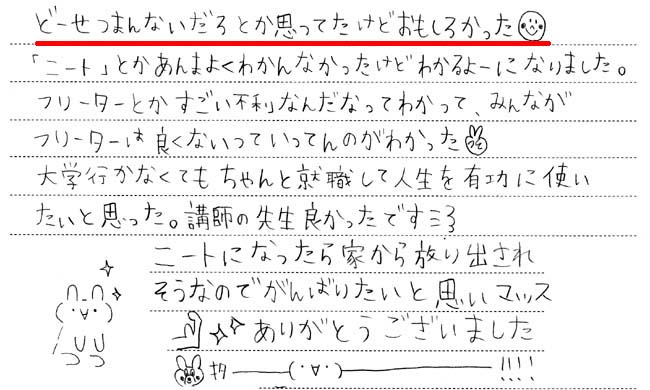 どーせつまんないだろとか思ってたけどおもしろかった
「ニート」とかあんまよくわかんなかったけどわかるよーになりました。
フリーターとかすごい不利なんだなってわかって、みんなが
フリーターは良くないっていってんのがわかった
大学行かなくてもちゃんと就職して人生を有功に使い
たいと思った。講師の先生良かったですミ3
ニートになったら家から放り出され
そうなのでがんばりたいと思いマッス
ありがとうございました
キタ――(・∀・)――!!!!
(・∀・)